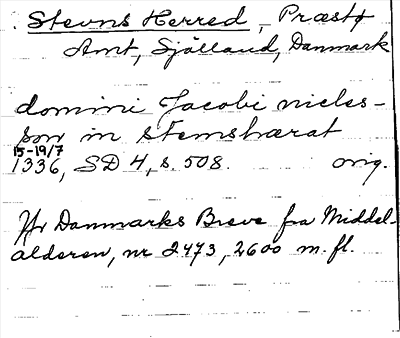 Stevns Herred, Præstø
Amt, Själland, Danmark
domini Jacobi nicles-
son in stemshærat
15-19/7
1336, SD 4, s. 508. orig.
Jfr Danmarks Breve fra Middel-
alderen, nr 2473, 2600 m. fl.